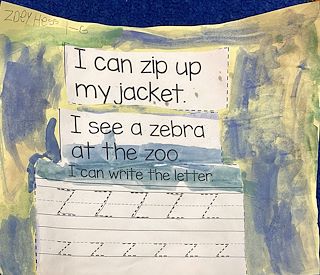 Zoey Hess 1-G
I can zip up
my jacket.
I see a zebra
at the zoo
I can write the letter
Z Z Z Z Z
z z z z z z